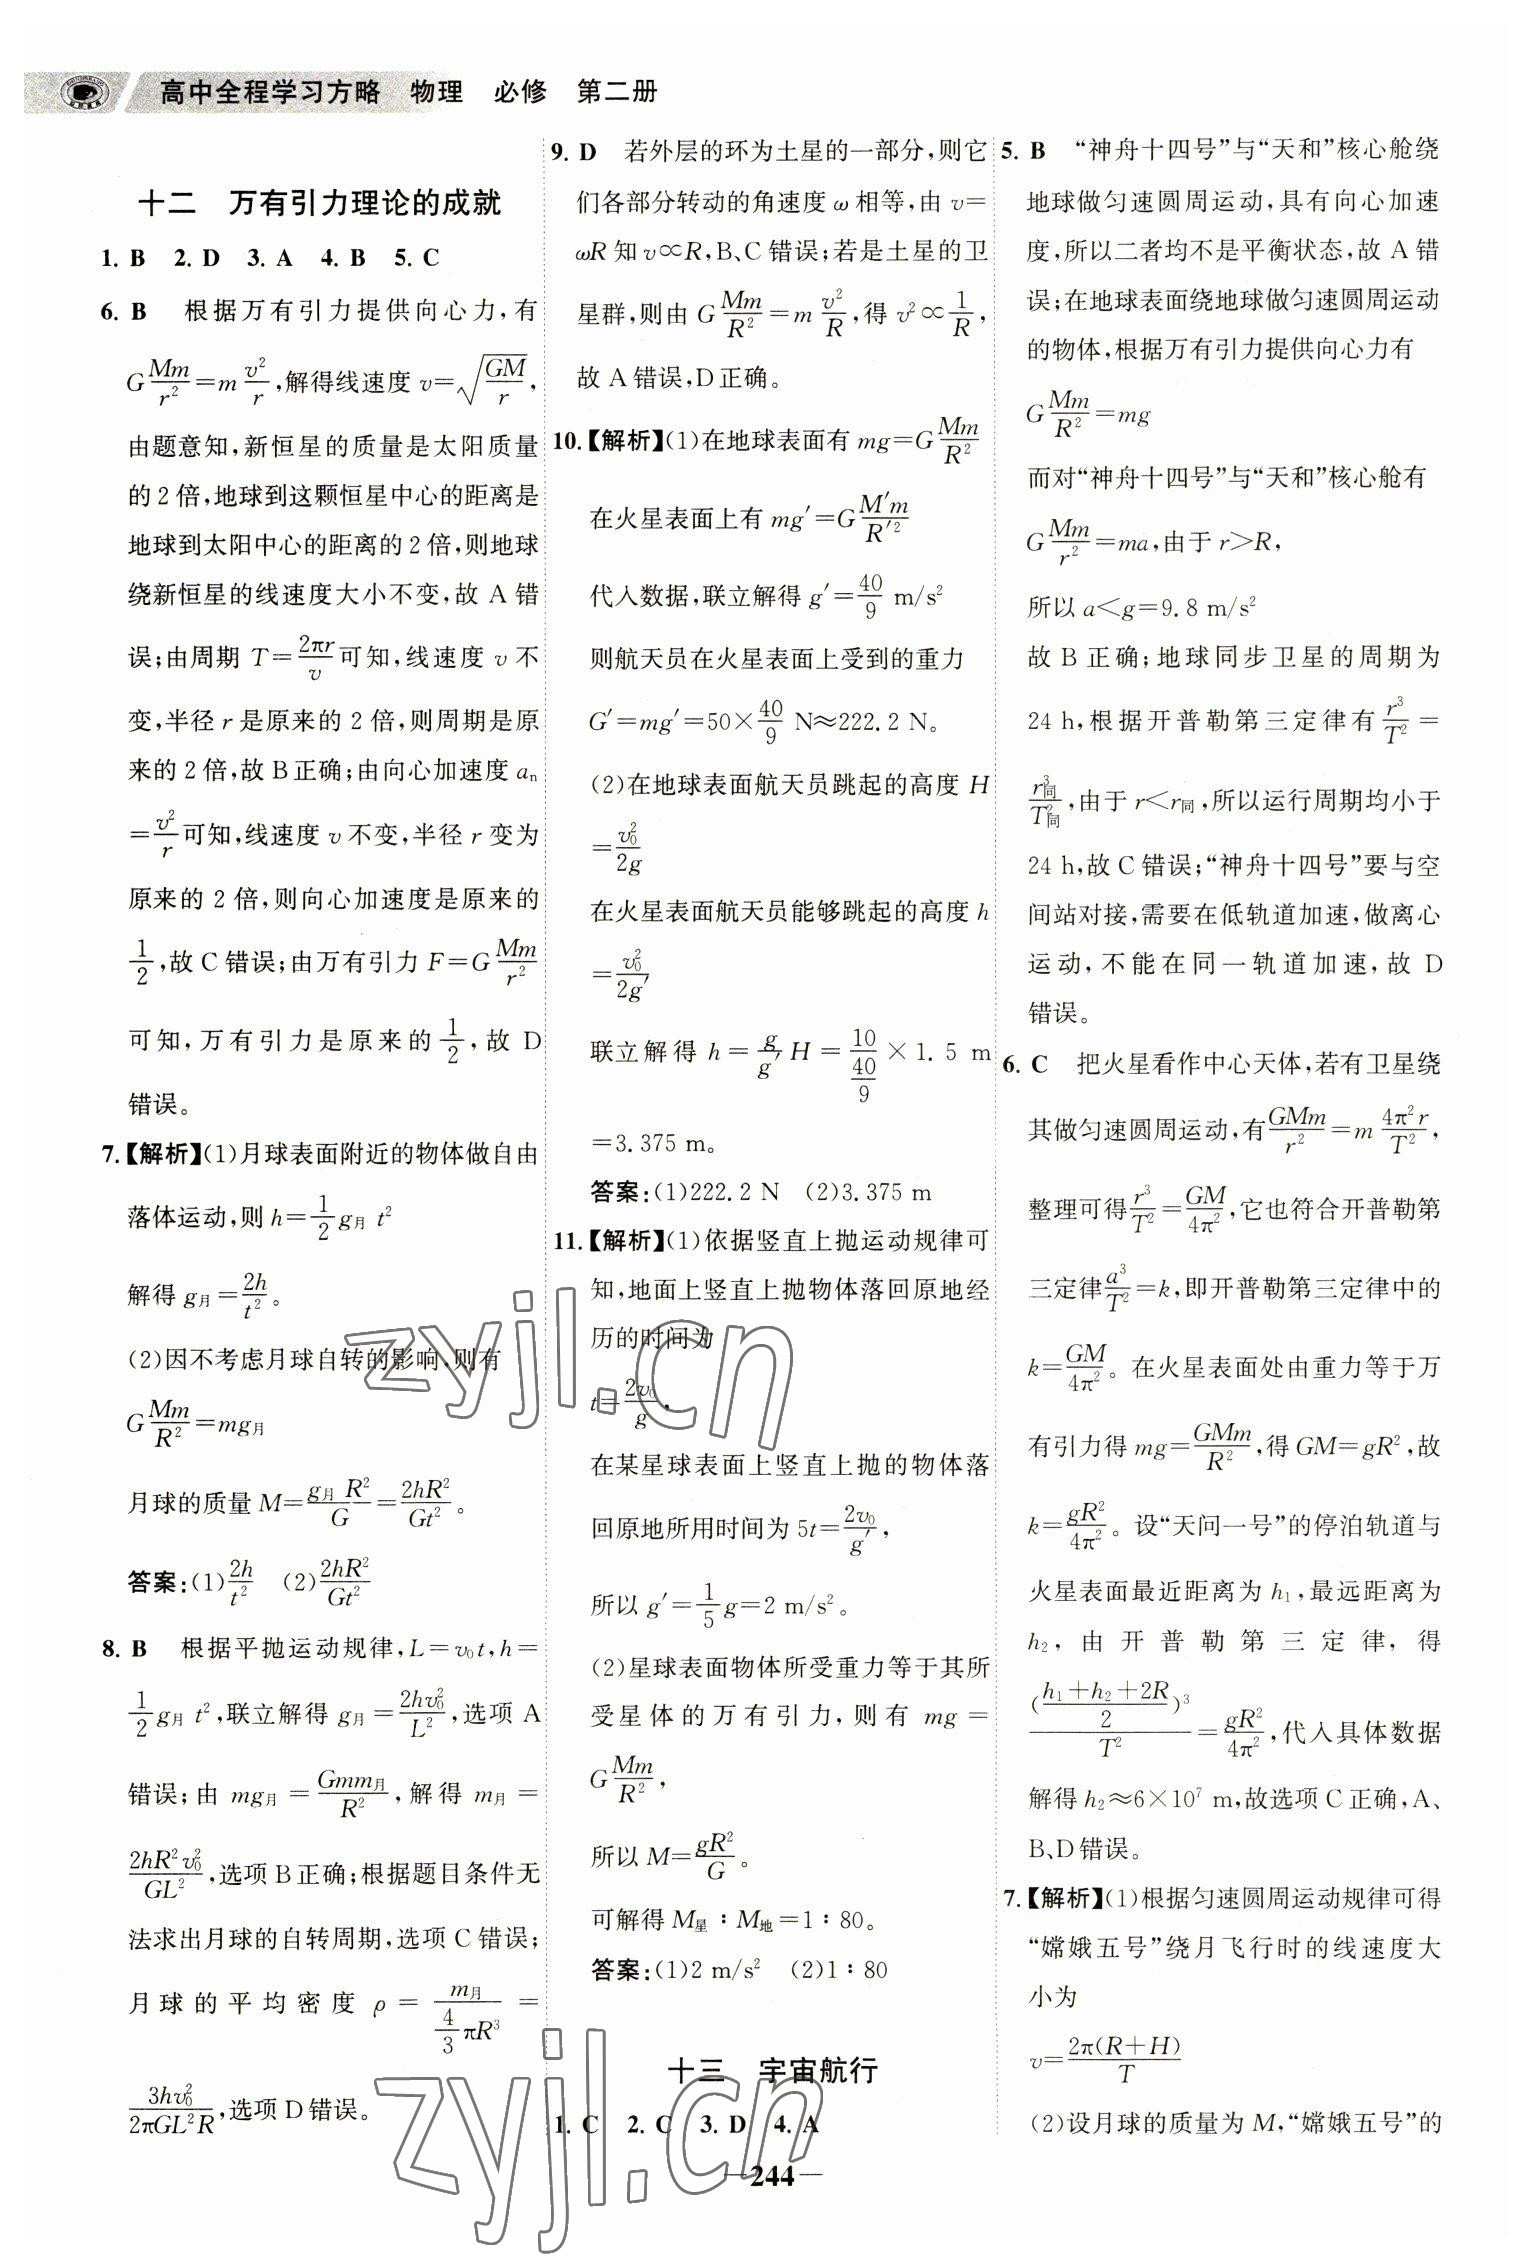 高中全程学习方略 物理 必修 第二册
十二 万有引力理论的成就
1. B 2. D 3. A 4. B 5. C
6. B 根据万有引力提供向心力,有
G\frac{Mm}{r^2}=m\frac{v^2}{r},解得线速度 v=\sqrt{\frac{GM}{r}},
由题意知,新恒星的质量是太阳质量
的 2 倍,地球到这颗恒星中心的距离是
地球到太阳中心的距离的 2 倍,则地球
绕新恒星的线速度大小不变,故 A 错
误;由周期 T=\frac{2πr}{v}可知,线速度 v 不
变,半径 r 是原来的 2 倍,则周期是原
来的 2 倍,故 B 正确;由向心加速度 a_n
=\frac{v^2}{r}可知,线速度 v 不变,半径 r 变为
原来的 2 倍,则向心加速度是原来的
\frac{1}{2},故 C 错误;由万有引力 F=G\frac{Mm}{r^2}
可知,万有引力是原来的\frac{1}{2},故 D
错误。
7.【解析】(1)月球表面附近的物体做自由
落体运动,则 h=\frac{1}{2}g_月 t^2
解得 g_月=\frac{2h}{t^2}。
(2)因不考虑月球自转的影响,则有
G\frac{Mm}{R^2}=mg_月
月球的质量 M=\frac{g_月 R^2}{G}=\frac{2hR^2}{Gt^2}。
答案:(1)\frac{2h}{t^2} (2)\frac{2hR^2}{Gt^2}
8. B 根据平抛运动规律,L=v_0t,h=
\frac{1}{2}g_月 t^2,联立解得 g_月=\frac{2hv_0^2}{L^2},选项 A
错误;由 mg_月=\frac{Gmm_月}{R^2},解得 m_月=
\frac{2hR^2v_0^2}{GL^2},选项 B 正确;根据题目条件无
法求出月球的自转周期,选项 C 错误;
月球的平均密度 ρ=\frac{m_月}{\frac{4}{3}πR^3}=
\frac{3hv_0^2}{2πGL^2R},选项 D 错误。
9. D 若外层的环为土星的一部分,则它
们各部分转动的角速度 ω 相等,由 v=
ωR 知 v∝R,B、C 错误;若是土星的卫
星群,则由 G\frac{Mm}{R^2}=m\frac{v^2}{R},得 v^2∝\frac{1}{R},
故 A 错误,D 正确。
10.【解析】(1)在地球表面有 mg=G\frac{Mm}{R^2}
在火星表面上有 mg′=G\frac{M′m}{R′^2}
代入数据,联立解得 g′=\frac{40}{9} m/s^2
则航天员在火星表面上受到的重力
G′=mg′=50×\frac{40}{9} N≈222.2 N。
(2)在地球表面航天员跳起的高度 H
=\frac{v_0^2}{2g}
在火星表面航天员能够跳起的高度 h
=\frac{v_0^2}{2g′}
联立解得 h=\frac{g}{g′}H=\frac{10}{\frac{40}{9}}×1.5 m
=3.375 m。
答案:(1)222.2 N (2)3.375 m
11.【解析】(1)依据竖直上抛运动规律可
知,地面上竖直上抛物体落回原地经
历的时间为
t=\frac{2v_0}{g},
在某星球表面上竖直上抛的物体落
回原地所用时间为 5t=\frac{2v_0}{g′},
所以 g′=\frac{1}{5}g=2 m/s^2。
(2)星球表面物体所受重力等于其所
受星体的万有引力,则有 mg=
G\frac{Mm}{R^2},
所以 M=\frac{gR^2}{G}。
可解得 M_星∶M_地=1∶80。
答案:(1)2 m/s^2 (2)1∶80
十三 宇宙航行
1. C 2. C 3. D 4. A
5. B “神舟十四号”与“天和”核心舱绕
地球做匀速圆周运动,具有向心加速
度,所以二者均不是平衡状态,故 A 错
误;在地球表面绕地球做匀速圆周运动
的物体,根据万有引力提供向心力有
G\frac{Mm}{R^2}=mg
而对“神舟十四号”与“天和”核心舱有
G\frac{Mm}{r^2}=ma,由于 r>R,
所以 a<g=9.8 m/s^2
故 B 正确;地球同步卫星的周期为
24 h,根据开普勒第三定律有\frac{r^3}{T^2}=
\frac{r_同^3}{T_同^2},由于 r<r_同,所以运行周期均小于
24 h,故 C 错误;“神舟十四号”要与空
间站对接,需要在低轨道加速,做离心
运动,不能在同一轨道加速,故 D
错误。
6. C 把火星看作中心天体,若有卫星绕
其做匀速圆周运动,有\frac{GMm}{r^2}=m\frac{4π^2r}{T^2},
整理可得\frac{r^3}{T^2}=\frac{GM}{4π^2},它也符合开普勒第
三定律\frac{a^3}{T^2}=k,即开普勒第三定律中的
k=\frac{GM}{4π^2}。在火星表面处由重力等于万
有引力得 mg=\frac{GMm}{R^2},得 GM=gR^2,故
k=\frac{gR^2}{4π^2}。设“天问一号”的停泊轨道与
火星表面最近距离为 h_1,最远距离为
h_2,由开普勒第三定律,得
\frac{(\frac{h_1+h_2+2R}{2})^3}{T^2}=\frac{gR^2}{4π^2},代入具体数据
解得 h_2≈6×10^7 m,故选项 C 正确,A、
B、D 错误。
7.【解析】(1)根据匀速圆周运动规律可得
“嫦娥五号”绕月飞行时的线速度大
小为
v=\frac{2π(R+H)}{T}
(2)设月球的质量为 M,“嫦娥五号”的
—244—
zyjl.cn
zyjl.cn